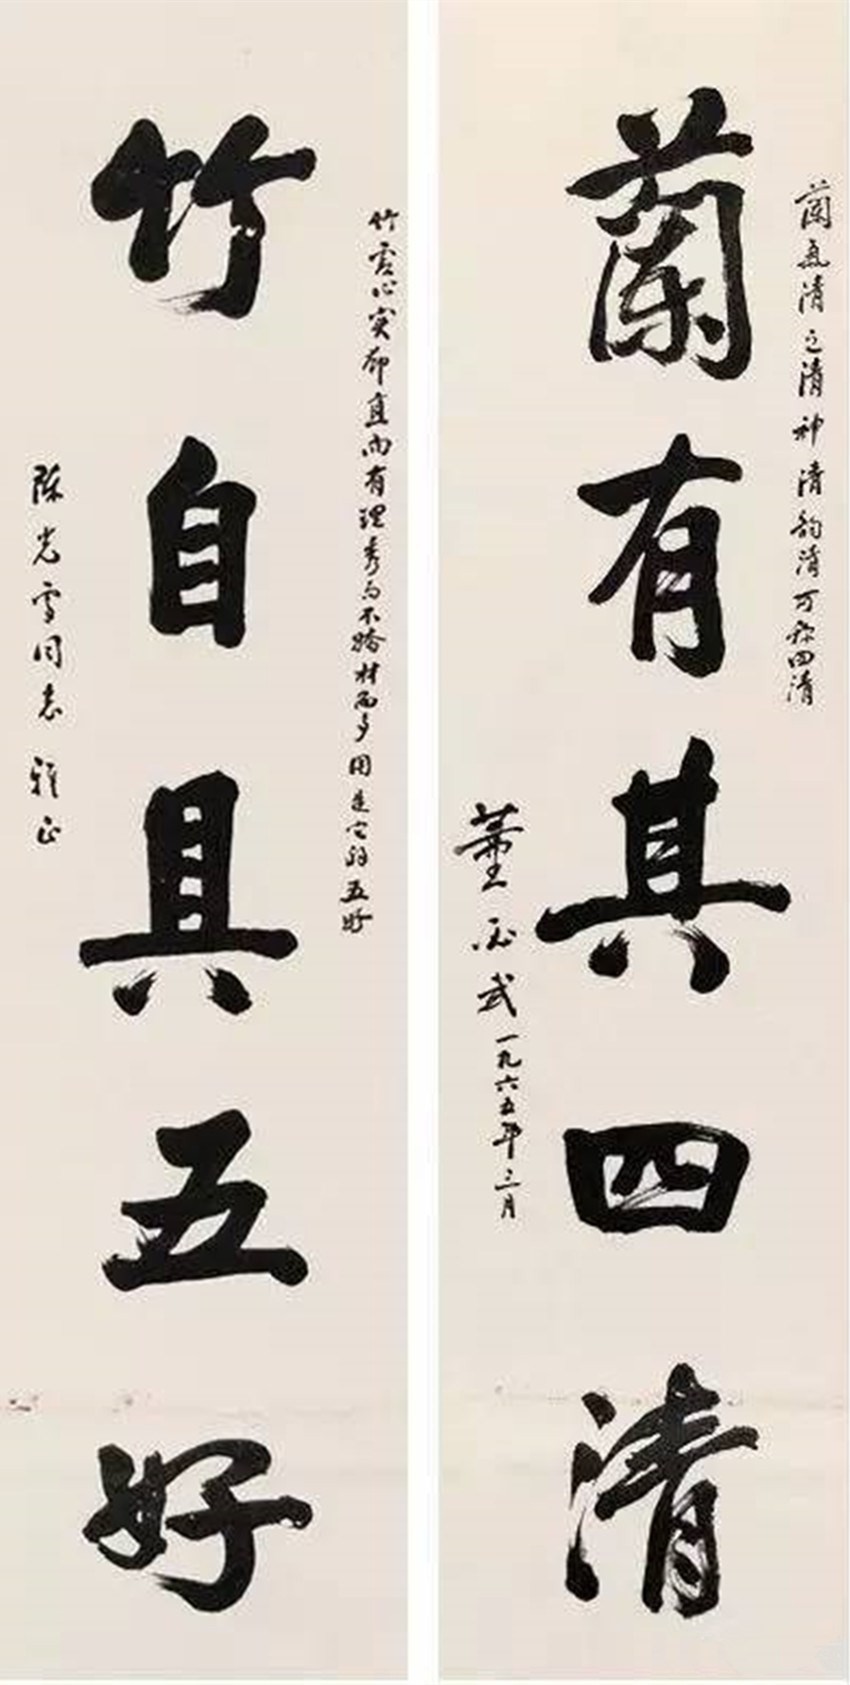 蘭氣清色清神清韵清可称四清
蘭有其四清
董必武一九六五年三月
竹虚心实节直而有理秀而不骄材而多用是它的五好
竹自具五好
陈光雪同志雅正